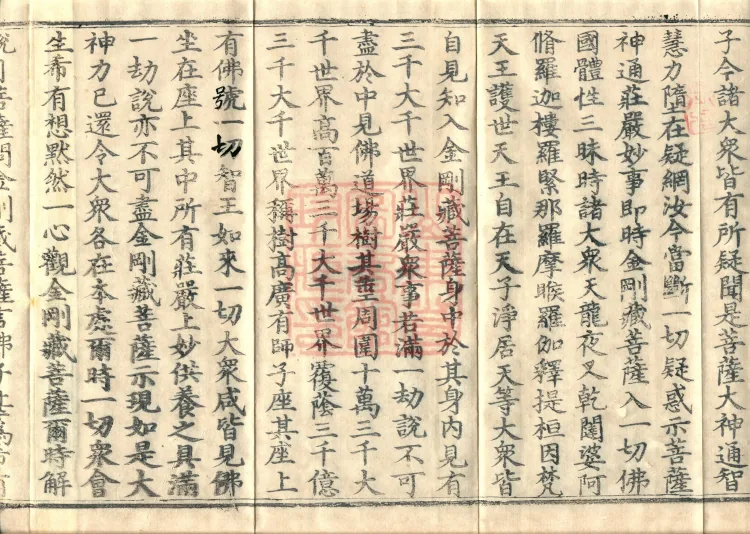 子令諸大衆皆有所疑聞是菩薩大神通智
慧力隨在疑網汝今當斷一切疑惑示菩薩
神通莊嚴妙事即時金剛藏菩薩入一切佛
國體性三昧時諸大衆天龍夜叉乾闥婆阿
脩羅迦樓羅緊那羅摩睺羅伽釋提桓因梵
天王護世天王自在天子淨居天等大衆皆
自見知入金剛藏菩薩身中於其身內見有
三千大千世界莊嚴衆事若滿一劫說不可
盡於中見佛道場樹其莖周圍十萬三千大
千世界高百萬三千大千世界覆蔭三千億
三千大千世界稱樹高廣有師子座其座上
有佛號一切智王如來一切大衆咸皆見佛
坐在座上其中所有莊嚴上妙供養之具滿
一劫說亦不可盡金剛藏菩薩示現如是大
神力已還令大衆各在本處爾時一切衆會
生希有想默然一心觀金剛藏菩薩爾時解
月菩薩問金剛藏菩薩言佛子